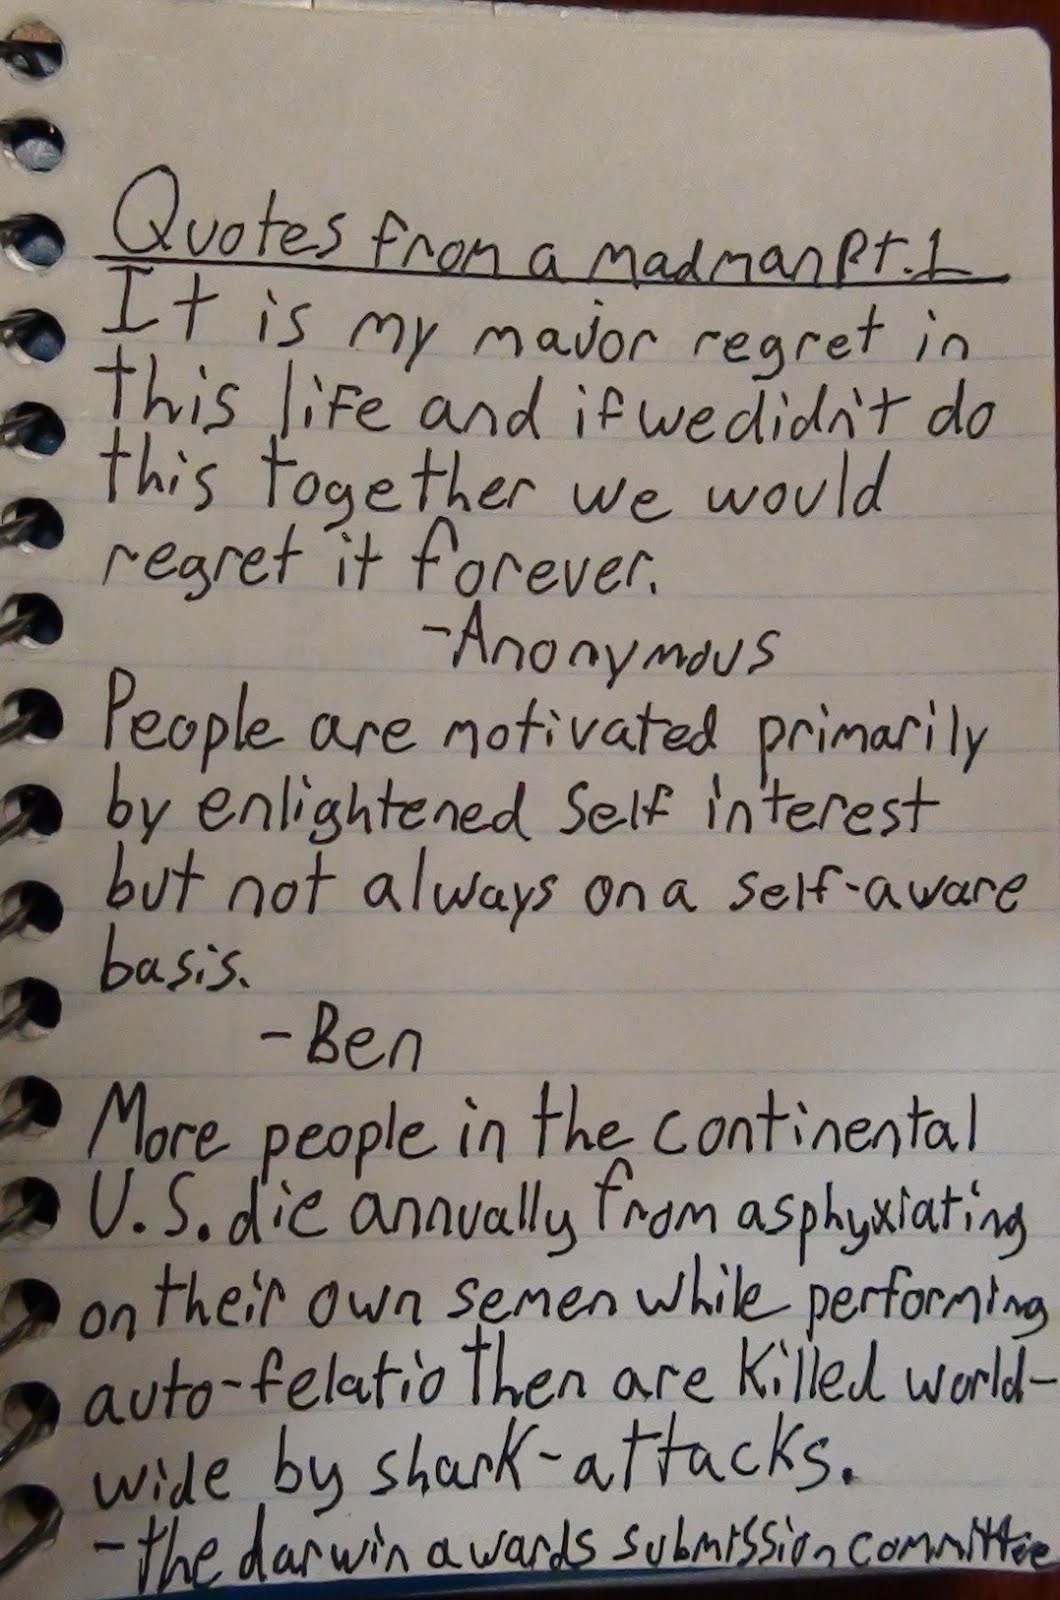 Quotes from a madman Pt.1
It is my major regret in
this life and if we didn't do
this together we would
regret it forever.
-Anonymous
People are motivated primarily
by enlightened self interest
but not always on a self-aware
basis.
-Ben
More people in the continental
U.S. die annually from asphyxiating
on their own semen while performing
auto-felatio then are killed world-
wide by shark-attacks.
-the darwin awards submission committee